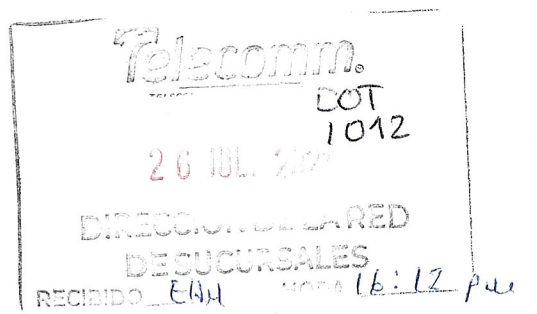 Telecomm.
DOT
1012
26 JUL.
DIRECCION DE LA RED
DE SUCURSALES
RECIBIDO EHH HORA 16:12 pm